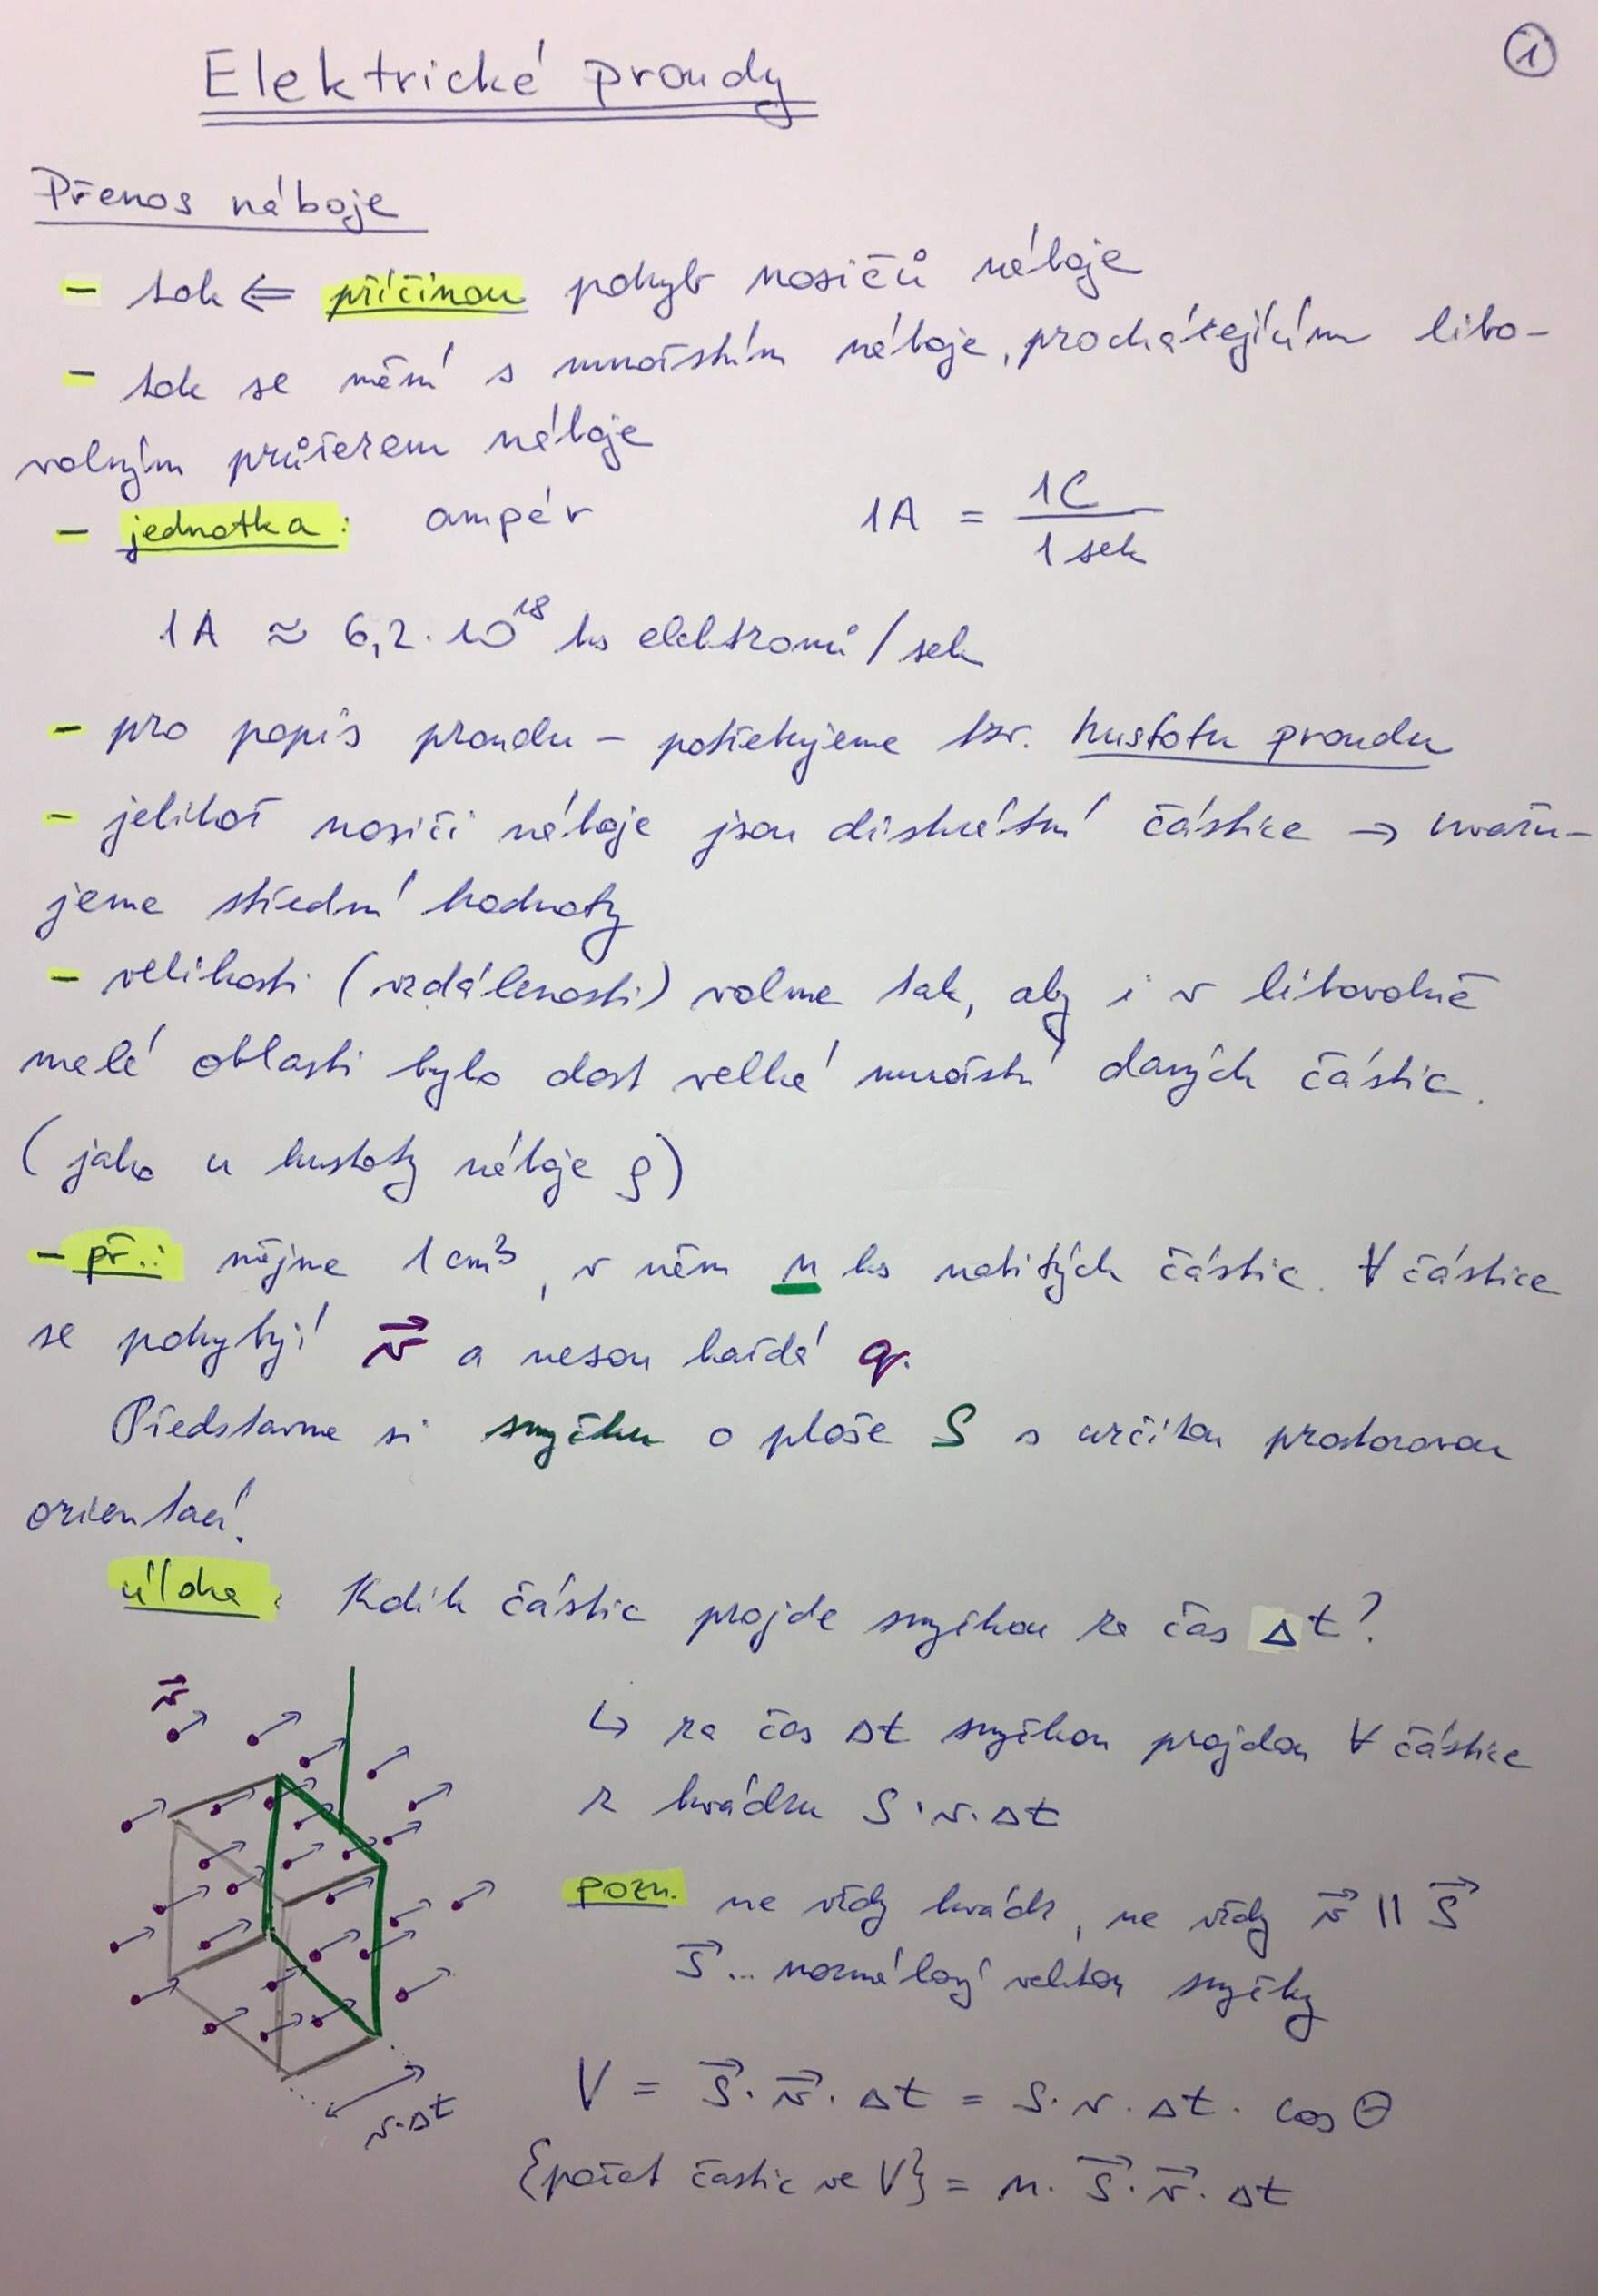 Elektrické proudy
①
Přenos náboje
- tok ⇐ příčinou pohyb nosičů náboje
- tok se mění s množstvím náboje, procházejícím libo-
volným průřezem náboje
- jednotka: ampér 1A = 1C / 1 sek
1A ≈ 6,2 · 10^18 ks elektronů / sek
- pro popis proudu - potřebujeme tzv. hustotu proudu
- jelikož nosiči náboje jsou diskrétní částice → uvažu-
jeme střední hodnoty
- velikosti (vzdálenosti) volme tak, aby i v libovolně
malé oblasti bylo dost velké množství daných částic.
(jako u hustoty náboje ρ)
- př.: mějme 1 cm³, v něm n ks nabitých částic. ∀ částice
se pohybují v⃗ a nesou každá q.
Představme si smyčku o ploše S s určitou prostorovou
orientací.
úloha: Kolik částic projde smyčkou za čas Δt?
v⃗
↳ za čas Δt smyčkou projdou ∀ částice
z kvádru S · v · Δt
pozn. ne vždy kvádr, ne vždy v⃗ || S⃗
S⃗ ... normálový vektor smyčky
v·Δt
V = S⃗ · v⃗ · Δt = S · v · Δt · cos Θ
{počet častic ve V} = n · S⃗ · v⃗ · Δt